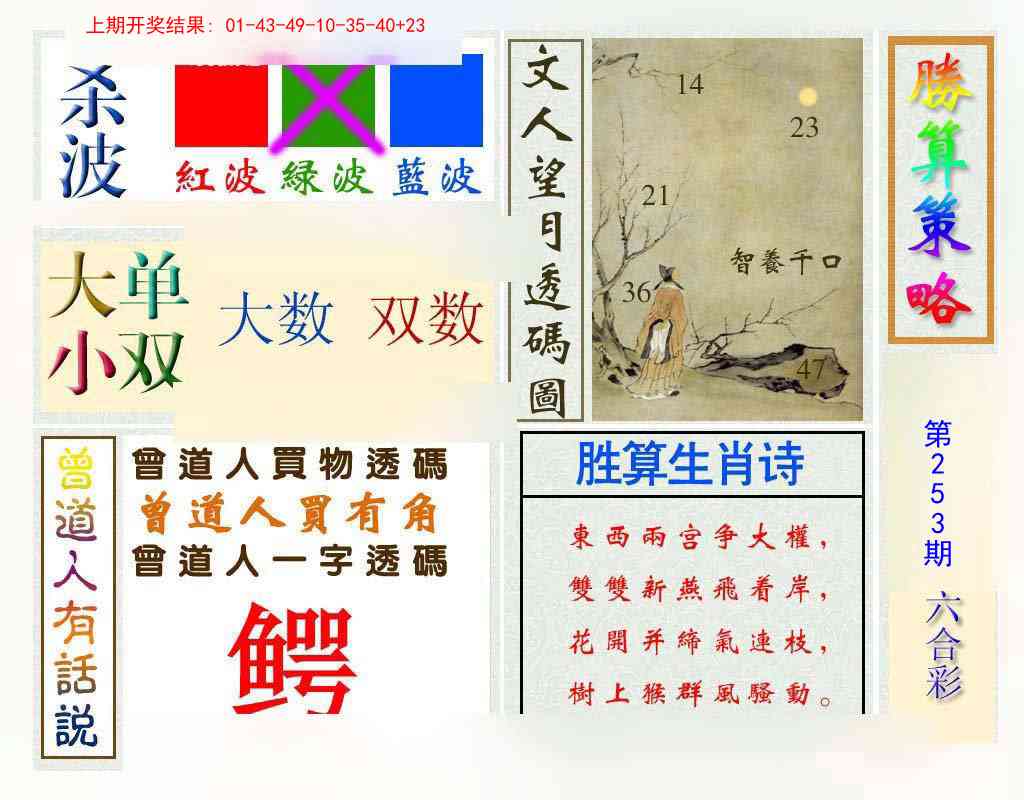 上期开奖结果: 01-43-49-10-35-40+23
杀波
紅波
緑波
藍波
大单
小双
大数
双数
文人望月透碼圖
14
23
21
智養千口
36
47
勝算策略
曾道人有話説
曾道人買物透碼
曾道人買有角
曾道人一字透碼
鳄
胜算生肖诗
東西兩宫争大權，
雙雙新燕飛着岸，
花開并締氣連枝，
樹上猴群風騷動。
第253期
六合彩